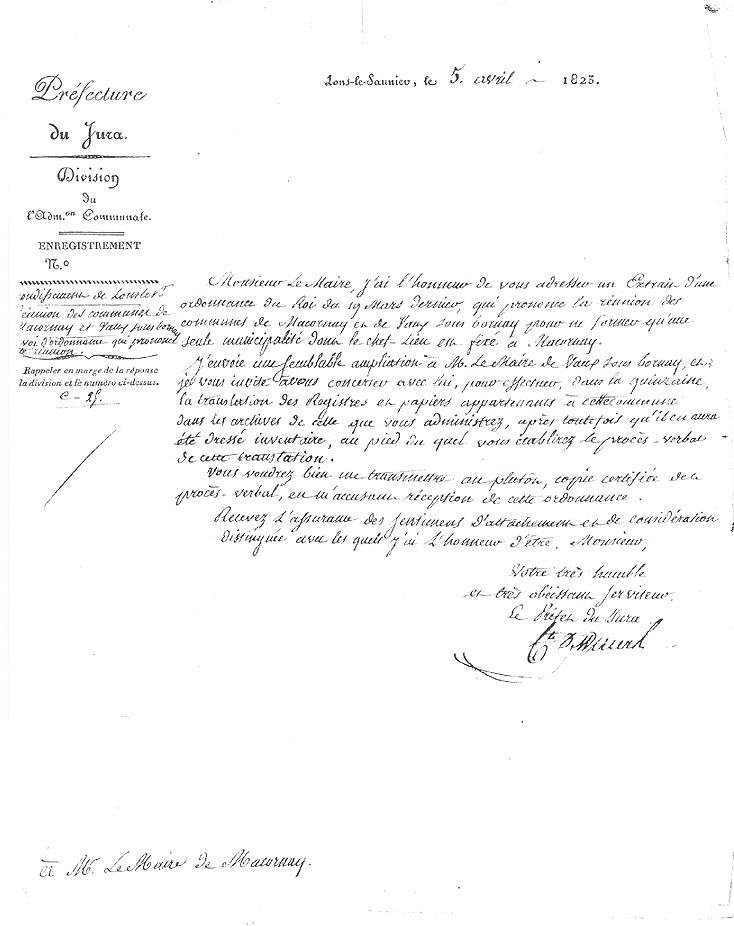 Préfecture
du Jura.
Division
du
l'Adm.on Communale.
ENREGISTREMENT
N.o
ondissement de Lons le Sr
Réunion des communes de
Macornay et Vaux sous bornay
voi d'ordonnance qui prononce
cette réunion.
Rappeler en marge de la réponse
la division et le numéro ci-dessus.
C - 25.
Lons-le-Saunier, le 5. avril 1823.
Monsieur Le Maire, j'ai l'honneur de vous adresser un Extrait d'une
ordonnance du Roi du 19 Mars dernier, qui prononce la réunion des
communes de Macornay et de Vaux sous bornay pour ne former qu'une
seule municipalité dont le chef-Lieu est fixé à Macornay.
J'envoie une semblable ampliation à M. Le Maire de Vaux sous bornay, et
je vous invite à vous concerter avec lui, pour effectuer, dans la quinzaine,
la translation des Registres et papiers appartenants à cette commune
dans les archives de celle que vous administrez, après toutefois qu'il en aura
été dressé inventaire, au pied du quel vous établirez le procès-verbal
de cette translation.
Vous voudrez bien me transmettre au plutôt, copie certifiée de ce
procès-verbal, en m'accusant réception de cette ordonnance.
Recevez L'assurance des sentimens d'attachement et de considération
distinguée avec les quels j'ai L'honneur d'être, Monsieur,
Votre très humble
et très obéissant serviteur.
Le Préfet du Jura
à M. Le Maire de Macornay.